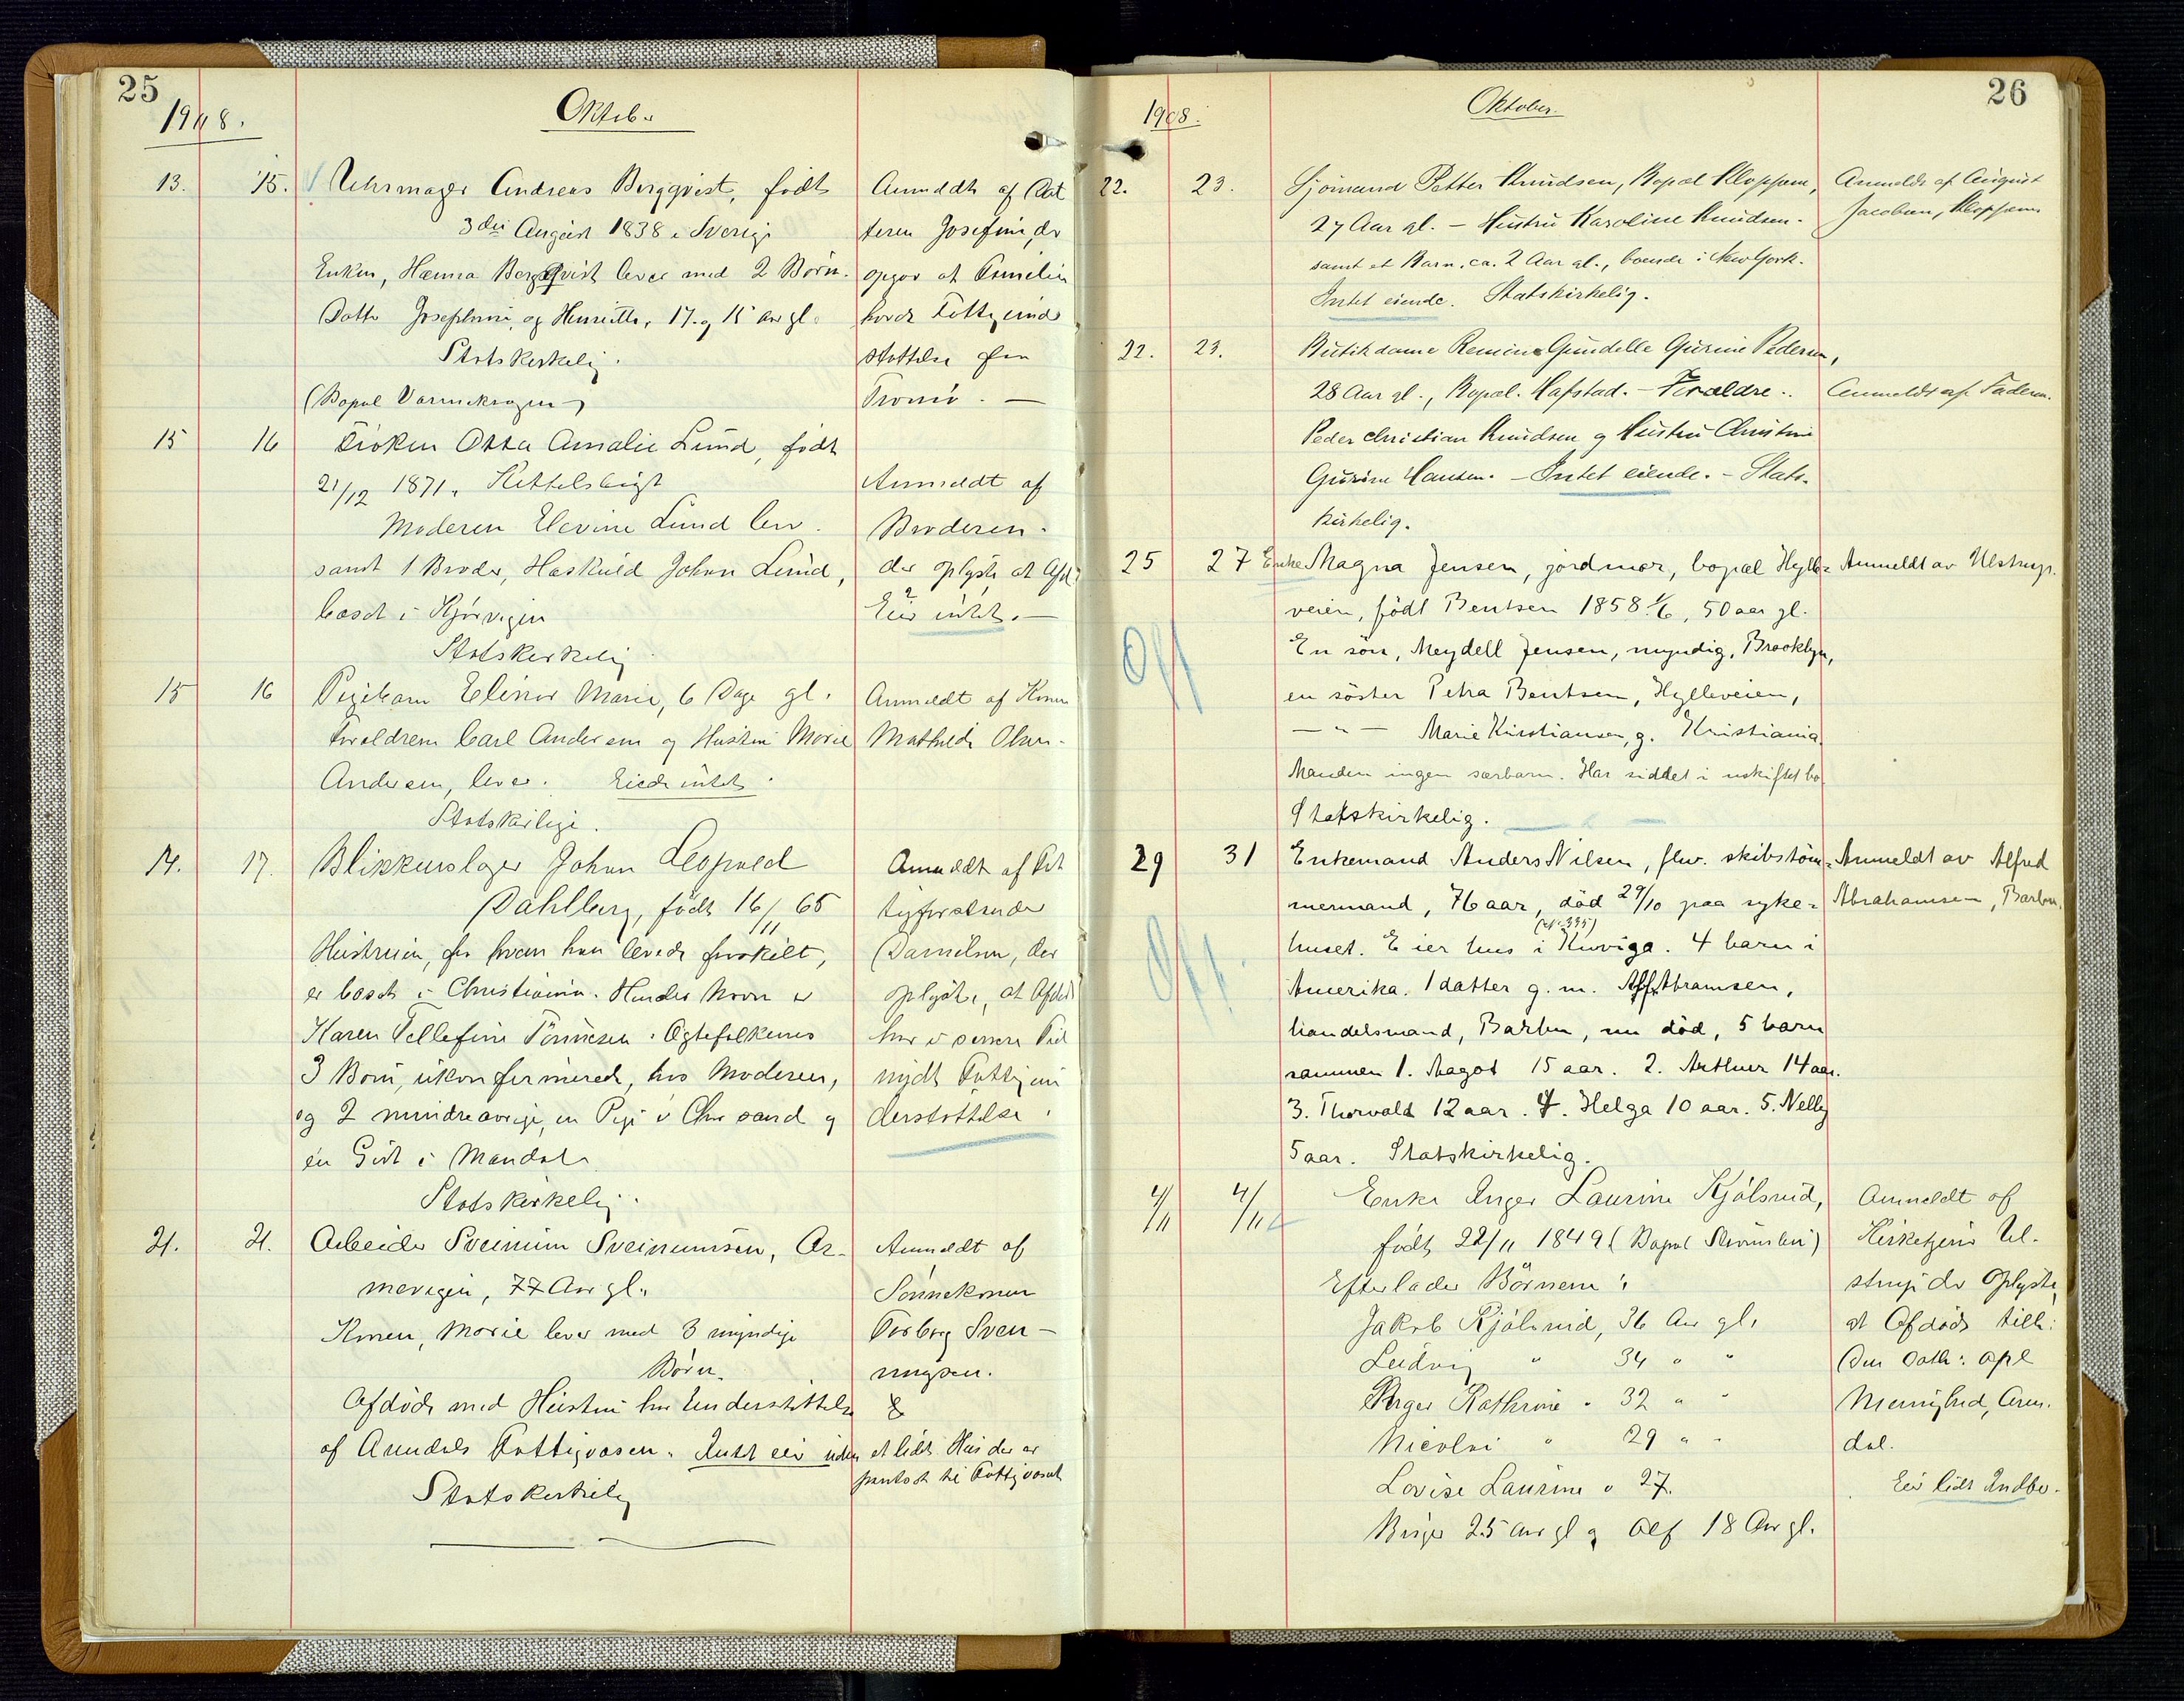 25
1908.
Oktob.
13. 15. Uhrmager Andreas Bergqvist, født
3die August 1838 i Sverige
Enken, Hanna Bergqvist lever med 2 Børn.
Døttre Josephine, og Henriette, 17. og 15 aar gl.
Statskirkelig.
(Bopæl
Anmeldt af Dat
teren Josefine, der
opgav at Familien
havde Fattigund
støttelse fra
Tromø. —
15 16 Frøken Otta Amalie Lund, født
21/12 1871, Kittelsbugt
Moderen Elevine Lund lever
samt 1 Broder, Haskuld Johan Lund,
bosat i Kjørvigen
Statskirkelig
Anmeldt af
Broderen.
der oplyste at Afd.
Eier intet. —
15 16 Pigebarn Elinor Marie, 6 Dage gl.
Forældrene Carl Andersen og Hustru Marie
Andersen, lever. Eiede intet.
Statskirkelige.
Anmeldt af Konen
Mathilde Olsen.
14. 17. Blikkenslager Johan Leopold
Dahlberg, født 16/11 65
Hustruen, fra hvem han levede fraskilt,
er bosat i Christiania. Hendes Navn er
Karen Tellefine Tønnesen. Ægtefolkenes
3 Børn, ukonfirmerede, hos Moderen,
og 2 mindreaarige, en Pige i Chr sand og
en Gut i Mandal.
Statskirkelig.
Anmeldt af Fat
tigforstander
Danielsen, der
oplyste, at Afdøde
har i senere Tid
nydt Fattigun
derstøttelse.
21. 21. Arbeider Sveinum Sveinumsen, Ar-
mevigen, 77 Aar gl.
Konen, Marie lever med 3 myndige
Børn.
Afdøde med Hustru har Understøttelse
af Arendals Fattigvæsen. Intet eier uden et lidet Hus der er
pantsat til Fattigvæsenet
Statskirkelig
Anmeldt af
Sønnekonen
Torborg Sven-
ningsen.
26
1908.
Oktober.
22. 23. Sjømand Petter Knudsen, Bopæl Klopjern,
27 Aar gl. — Hustru Karoline Knudsen.
samt et Barn, ca. 2 Aar gl., boende i New York.
Intet eiende. Statskirkelig.
Anmeldt af August
Jacobsen,
22. 23. Butikdame Remine Gundelle Gurine Pedersen,
28 Aar gl., Bopæl. Hafstad. — Forældre:
Peder Christian Knudsen og Hustru Christine
Gurine Hansen. — Intet eiende. — Stats-
kirkelig.
Anmeldt af Faderen.
25 27 Enke Magna Jensen, jordmor, bopæl Hylle=
veien, født Bentsen 1858 1/6, 50 aar gl.
En søn, Meydell Jensen, myndig, Brooklyn,
en søster Petra Bentsen, Hylleveien,
— " — Marie Kristiansen, g. Kristiania.
Manden ingen særbarn. Har siddet i uskiftet bo
Statskirkelig.
Anmeldt av Ulstrup.
Off
29 31 Enkemand Anders Nilsen, fhv. skibstøm=
mermand, 76 aar, død 29/10 paa syke=
huset. Eier hus i Kuviga. 4 barn i
Amerika. 1 datter g. m. Alf. Abramsen,
handelsmand, Barbu, nu død, 5 barn
sammen 1. Magot 15 aar. 2. Arthur 14 aar.
3. Thorvald 12 aar. 4. Helga 10 aar. 5. Nelly
5 aar. Statskirkelig.
Anmeldt av Alfred
Abrahamsen, Barbu.
Off.
4/11 4/11 Enke Inger Laurine Kjølsrud,
født 22/11 1849 (Bopæl Strømsbu)
Efterlader Børnene:
Jakob Kjølsrud, 36 Aar gl.
Ludvig " 34 " "
Inger Kathrine " 32 "
Nicolai " 29 " "
Lovise Laurine " 27.
Birger 25 Aar gl og Alf 18 Aar gl.
Anmeldt af
Kirketjener Ul-
strup der oplyste,
at Afdøde tilh:
Den cath: apl
Menighed, Aren-
dal.
Eier lidt Indbo.